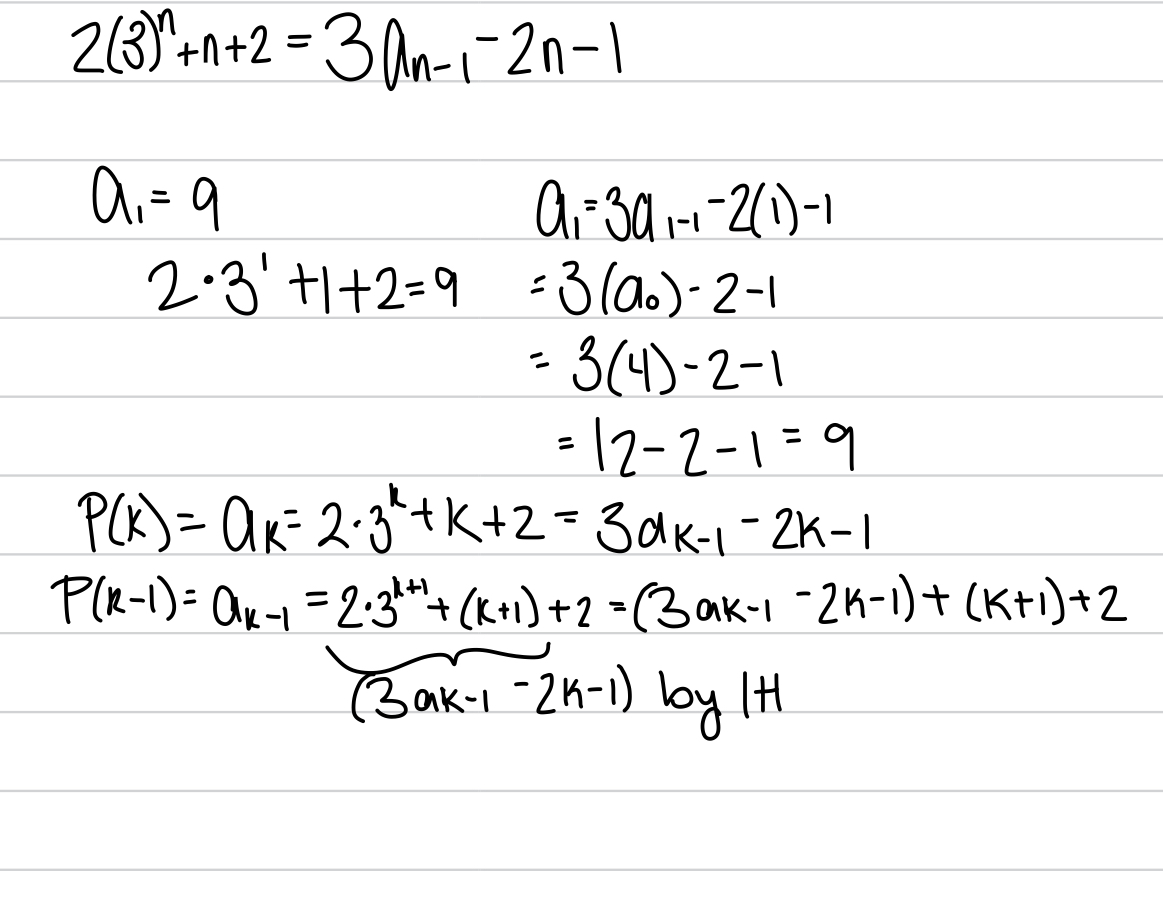 2(3)ⁿ+n+2 = 3aₙ₋₁ - 2n - 1
a₁ = 9
a₁ = 3a₁₋₁ - 2(1) - 1
2·3¹ + 1 + 2 = 9
= 3(a₀) - 2 - 1
= 3(4) - 2 - 1
= 12 - 2 - 1 = 9
P(k) = aₖ = 2·3ᵏ + k + 2 = 3aₖ₋₁ - 2k - 1
P(k-1) = aₖ₋₁ = 2·3ᵏ⁺¹ + (k+1) + 2 = (3aₖ₋₁ - 2k - 1) + (k+1) + 2
(3aₖ₋₁ - 2k - 1) by IH